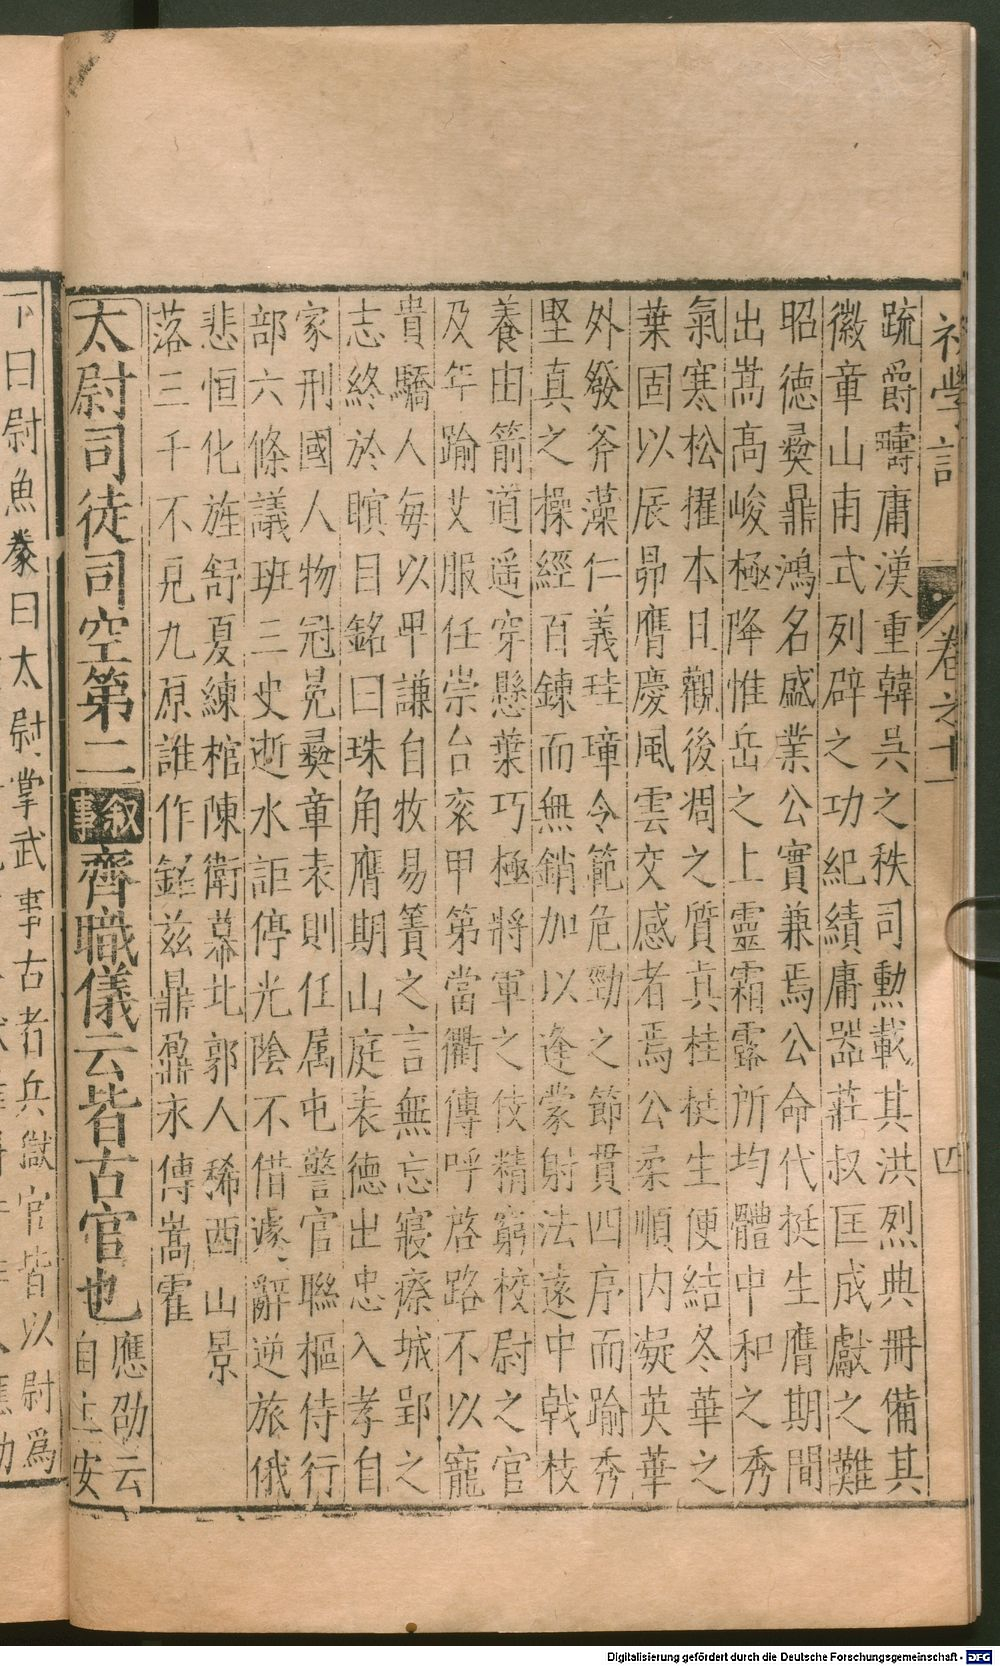 初學記 卷之十一 四
疏爵疇庸漢重韓吳之秩司勳載其洪烈典冊備其
徽章山甫式列辟之功紀績庸器莊叔匡成獻之難
昭德彝鼎鴻名盛業公實兼焉公命代挺生膺期間
出嵩高峻極降惟岳之上靈霜露所均體中和之秀
氣寒松擢本日觀後凋之質真桂挺生便結冬華之
葉固以辰昴膺慶風雲交感者焉公柔順內凝英華
外發斧藻仁義珪璋令範危勁之節貫四序而踰秀
堅真之操經百鍊而無銷加以逢蒙射法遠中戟枝
養由箭道遥穿懸葉巧極將軍之伎精窮校尉之官
及年踰艾服任崇台衮甲第當衢傳呼啓路不以寵
貴驕人每以甲謙自牧易簀之言無忘寢瘵城郢之
志終於瞑目銘曰珠角膺期山庭表德出忠入孝自
家刑國人物冠冕彝章表則任属屯警官聯樞侍行
部六條議班三史逝水詎停光陰不借遽辭逆旅俄
悲恒化旌舒夏練棺陳衛幕北郭人稀西山景
落三千不見九原誰作銘兹鼎鼐永傳嵩霍
太尉司徒司空第二 叙事 齊職儀云皆古官也 應劭云
自上安
下曰尉魚豢曰太尉掌武事古者兵獄官皆以尉爲
Digitalisierung gefördert durch die Deutsche Forschungsgemeinschaft - DFG